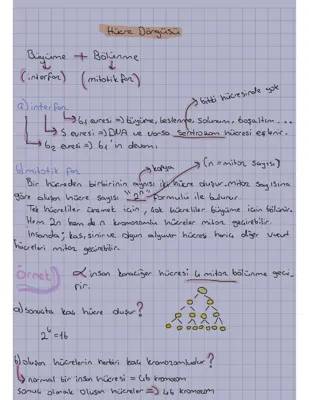 Hücre Döngüsü
Büyüme + Bölünme
(interfaz) (mitotik faz)
bitki hücresinde yok
a) interfaz
G1 evresi => büyüme, beslenme, solunum, boşaltım...
S evresi => DNA ve varsa sentrozom hücresi eşlenir.
G2 evresi => G1'in devamı.
b) mitotik faz
kopya
(n = mitoz sayısı)
Bir hücreden birbirinin aynısı iki hücre oluşur. mitoz sayısına
göre oluşan hücre sayısı "2ⁿ" formülü ile bulunur.
Tek hücreliler üremek için, çok hücreliler büyüme için bölünür.
Hem 2n hem de n kromozomlu hücreler mitoz geçirebilir.
İnsanda; kas, sinir ve olgun alyuvar hücresi hariç diğer vücut
hücreleri mitoz geçirebilir.
Örnek
insan karaciğer hücresi 4 mitoz bölünme geçi-
rir.
a) Sonuçta kaç hücre oluşur?
2⁴ = 16
b) oluşan hücrelerin herbiri kaç kromozomludur?
normal bir insan hücresi = 46 kromozom
sonuç olarak oluşan hücreler => 46 kromozom